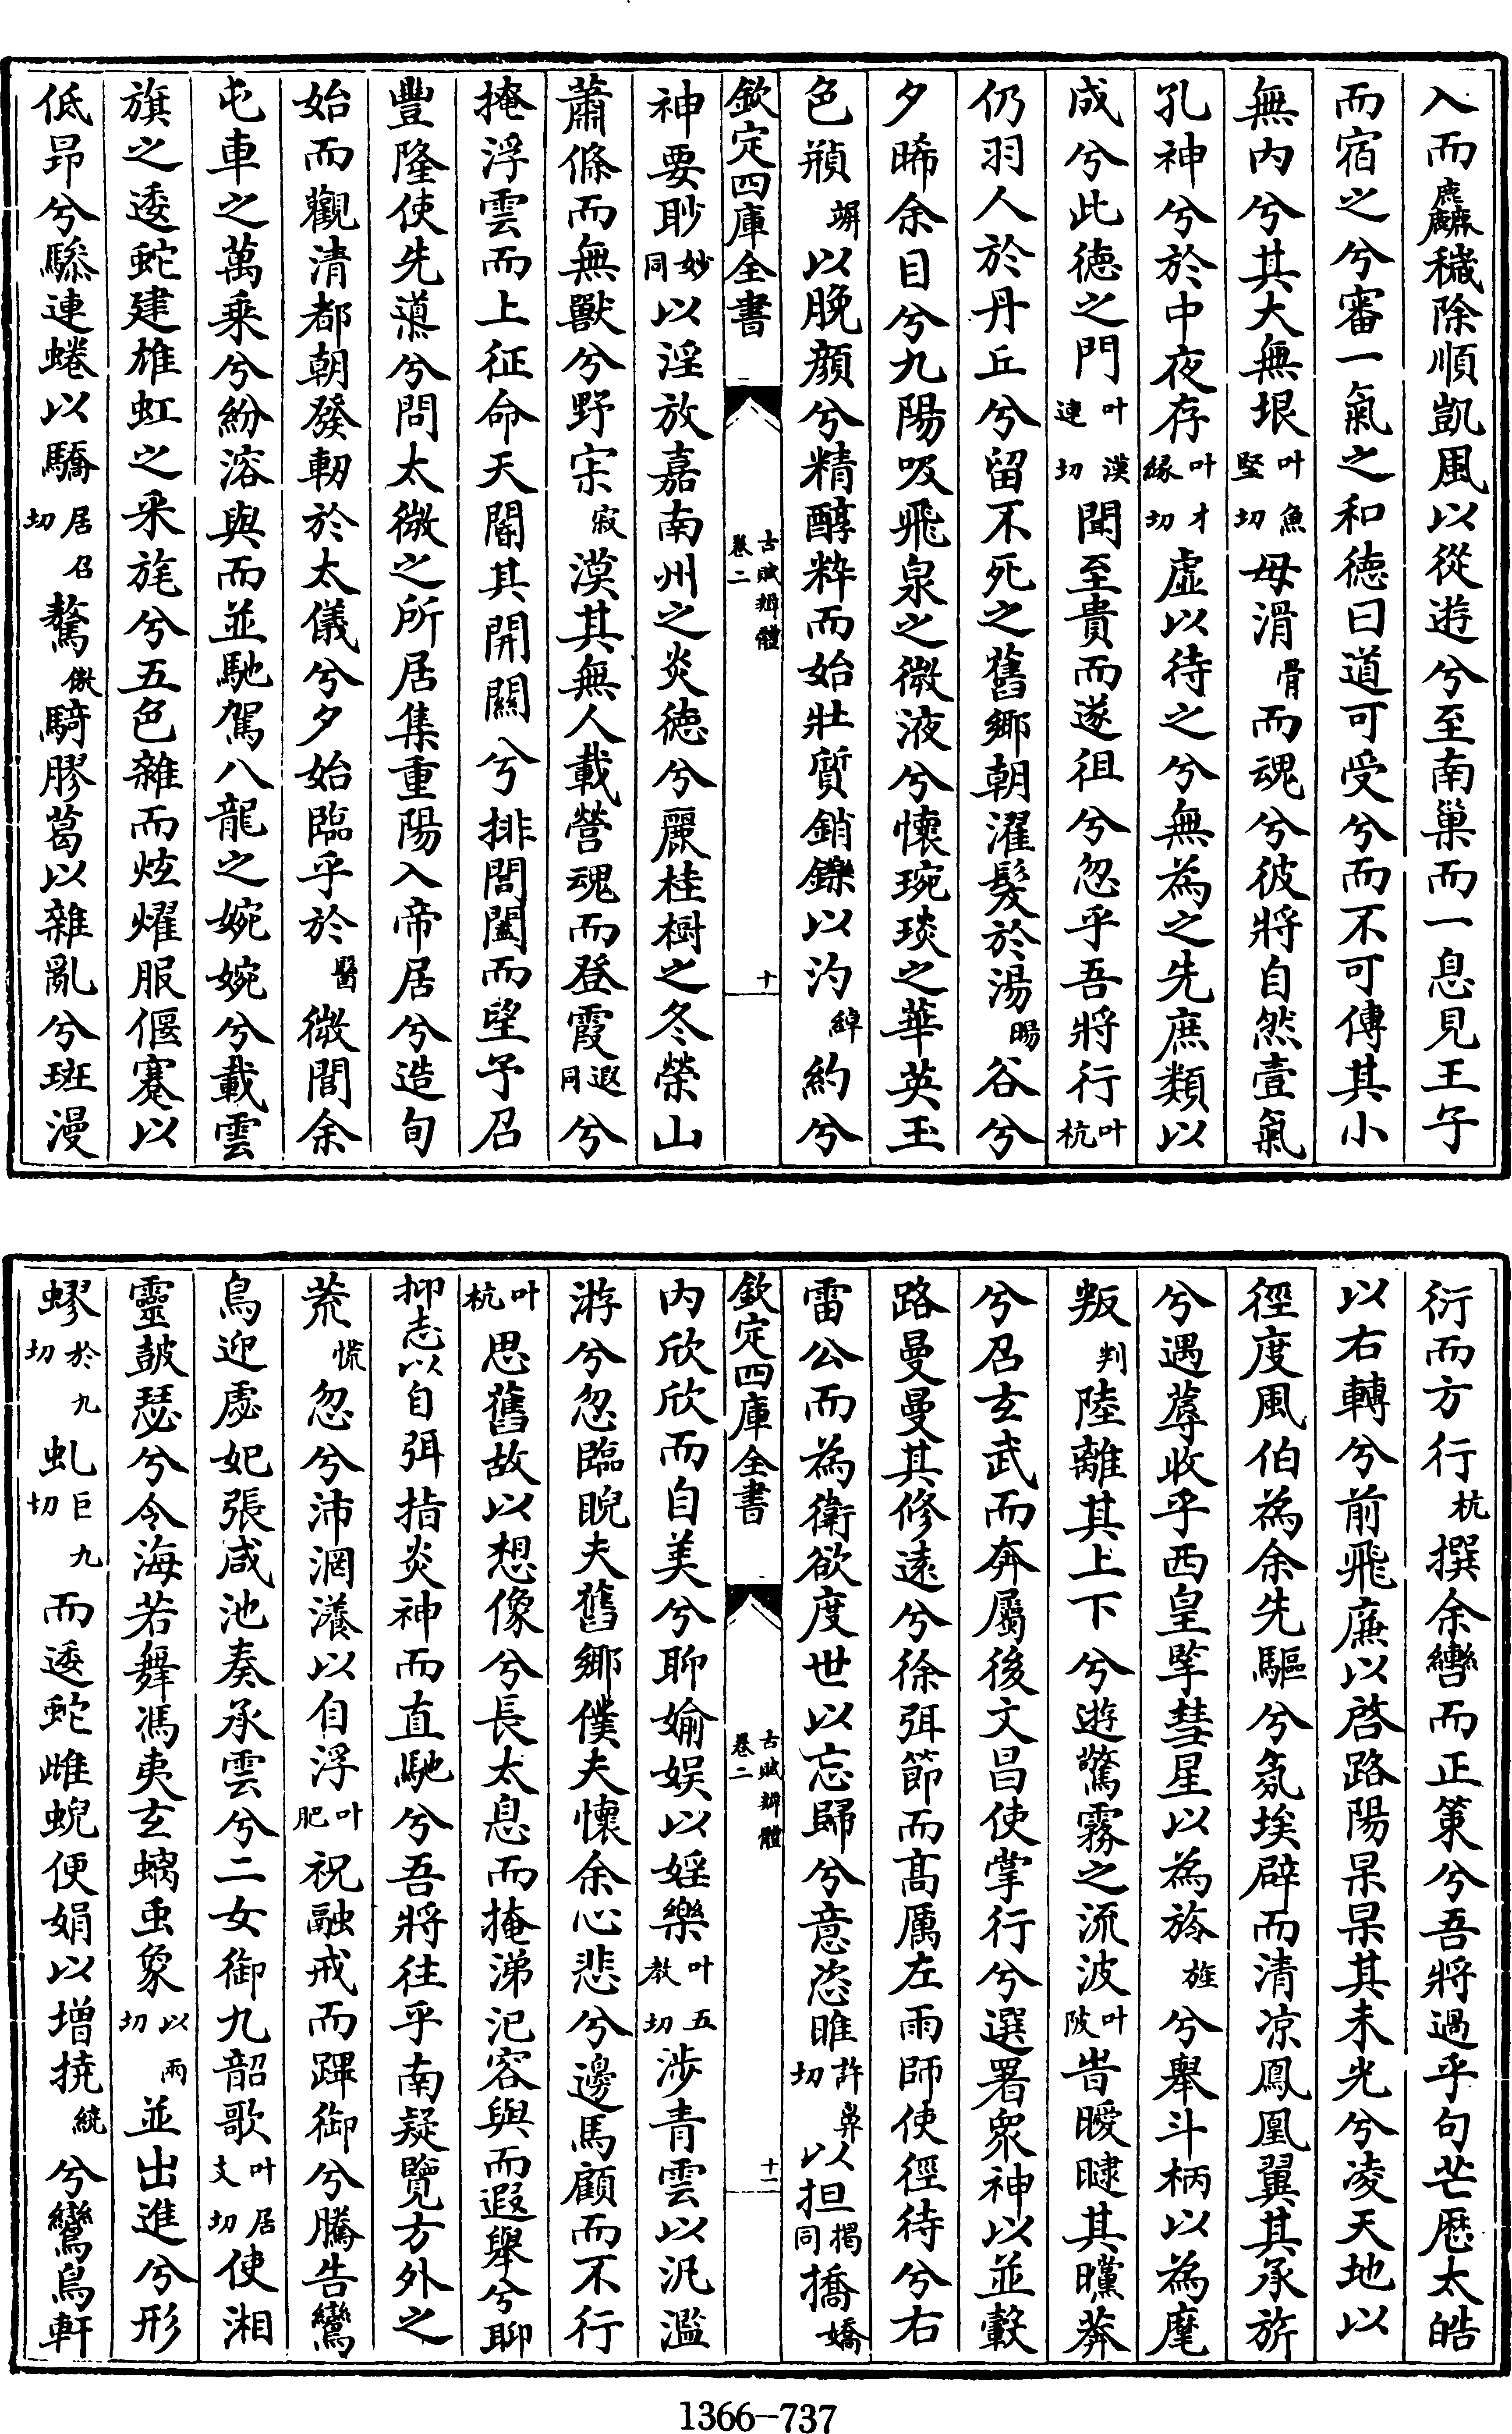 入而麤穢除順凱風以從遊兮至南巢而一息見王子
而宿之兮審一氣之和德曰道可受兮而不可傳其小
無内兮其大無垠叶魚堅切毋滑骨而魂兮彼將自然壹氣
孔神兮於中夜存叶才緣切虛以待之兮無為之先庶類以
成兮此德之門叶漠連切聞至貴而遂徂兮忽乎吾將行叶杭
仍羽人於丹丘兮留不死之舊鄉朝濯髮於湯暘谷兮
夕晞余目兮九陽吸飛泉之微液兮懷琬琰之華英玉
色頩竮以脕顔兮精醇粹而始壯質銷鑠以汋綽約兮
欽定四庫全書
古賦辯體
卷二
十
神要眇妙同以淫放嘉南州之炎德兮麗桂樹之冬榮山
蕭條而無獸兮野宗寂漠其無人載營魂而登霞遐同兮
掩浮雲而上征命天閽其開關兮排閶闔而望予召
豐隆使先導兮問太微之所居集重陽入帝居兮造旬
始而觀清都朝發軔於太儀兮夕始臨乎於醫微閭余
屯車之萬乘兮紛溶與而並馳駕八龍之婉婉兮載雲
旗之逶蛇建雄虹之采旄兮五色雜而炫燿服偃蹇以
低昻兮驂連蜷以驕居召切驁傲騎膠葛以雜亂兮斑漫
衍而方行杭撰余轡而正策兮吾將過乎句芒歷太皓
以右轉兮前飛廉以啓路陽杲杲其未光兮凌天地以
徑度風伯為余先驅兮氛埃辟而清凉鳳凰翼其承旂
兮遇蓐收乎西皇擥彗星以為旍旌兮舉斗柄以為麾
叛判陸離其上下兮遊驚霧之流波叶陂旹曖曃其曭莽
兮召玄武而奔屬後文昌使掌行兮選署衆神以並轂
路曼曼其修遠兮徐弭節而髙厲左雨師使徑待兮右
雷公而為衛欲度世以忘歸兮意恣睢許鼻切以担揭同撟嬌
欽定四庫全書
古賦辯體
卷二
十一
内欣欣而自美兮聊媮娱以婬樂叶五教切涉青雲以汎濫
游兮忽臨睨夫舊鄉僕夫懷余心悲兮邊馬顧而不行
叶杭思舊故以想像兮長太息而掩涕汜容與而遐舉兮聊
抑志以自弭指炎神而直馳兮吾將往乎南疑覽方外之
荒慌忽兮沛㴏瀁以自浮叶肥祝融戒而蹕御兮騰告鸞
鳥迎虙妃張咸池奏承雲兮二女御九韶歌叶居支切使湘
靈鼓瑟兮令海若舞馮夷玄螭虫象以兩切並出進兮形
蟉於九切虬巨九切而逶蛇雌蜺便娟以增撓繞兮鸞鳥軒
1366-737